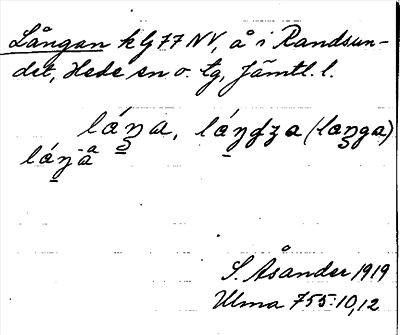 Långan k G 77 NV, å i Randsun-
det, Hede sn o. tg, Jämtl. l.
lǻŋa, lǻŋgʒa (laŋga)
lǻŋåa
S. Åsander 1919
Ulma 755:10,12